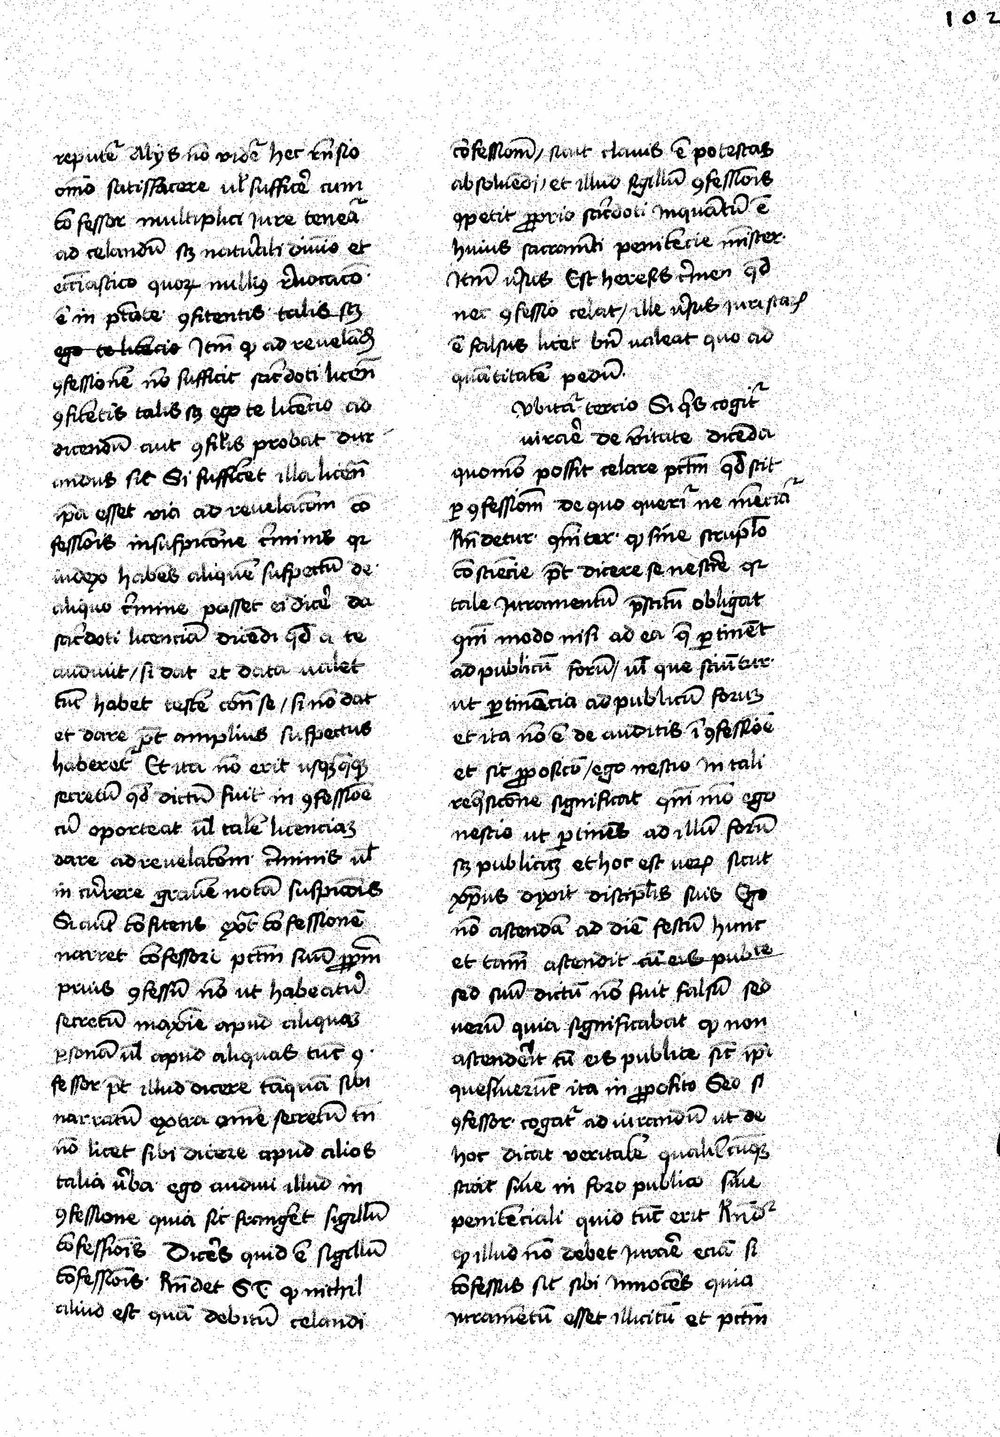 102
reputet᷑ Alijs nō vidēt hec rn̄sio
om̄io satisfacere ul̄ sufficē cum
cōfessor multiplici iure teneat᷑
ad celandū sꝫ naturali diuīo et
ecc̄iastico quoꝝ nullius reuocacō
ē in ptāte ꝯfitentis talis sꝫ
ego te licēcio Itm̄ ꝙ ad reueland
ꝯfessionē nō sufficit sacdoti licen̄
ꝯfitētis talis sꝫ ego te licencio ad
dicendū aut ꝯsil̄is probat᷑
sic Si sufficet illa licen̄
ip̄a esset via ad reuelacōm cō
fessiōis in suspicōne c̄minis qr
iudex habēs aliquē suspectū de
aliquo c̄mine posset ei dicē da
sacdoti licenciā dicēdi qd̄ a te
audiuit / si dat et data ualet
tūc habet testē con̄ se / si nō dat
et dare pt̄ amplius suspectus
haberet᷑ Et ita nō erit usqꝫqꝫ
secretū qd̄ dictū fuit in ꝯfessiōe
cū oporteat ul̄ talē licenciaꝫ
dare ad reuelacōem c̄minis ul̄
incurrere grauē notā suspiciōis
Si autē cōfitens exͭ cōfessionē
narret cōfessori pctm̄ suū ꝓpm̄
prius ꝯfessū nō ut habeatur
secretū maxīe apud aliquaꝫ
ꝑsonā ul̄ apud aliquas tūc ꝯ
fessor pt̄ illud dicere tāquā sibi
narratū extra om̄e secretū tn̄
nō licet sibi dicere apud alios
talia ūba ego audiui illud in
ꝯfessione quia sic frangeret sigillū
cōfessiōis Diceres quid ē sigillū
cōfessiōis Rn̄det S T ꝙ nichil
aliud est quā debitū celandi
cōfessionē / sicut clauis ē potestas
absoluēdi / et illud sigillū ꝯfessiōis
ꝯpetit ꝓprio sacdoti inquātū ē
huius sacramēti penitēcie mīster
Itm̄ ūsus Est heresis c̄men qd̄
nec ꝯfessio celat / ille ūsus iuristaꝝ
ē falsus licet bn̄ ualeat quo ad
quātitatē pedū
Dubitat᷑ tercio Si qͥs cogit᷑
iurare de ūitate dicēda
quomō possit celare pctm̄ qd̄ scit
ꝑ ꝯfessionē de quo querit᷑ ne mēciat᷑
Rn̄detur ꝯm̄iter ꝙ sine scrupulo
cōsciēcie pt̄ dicere se nescire qr
tale iuramentū p̄stitū obligat
ꝯm̄i modo nisi ad ea q̄ ꝑtinēt
ad publicū forū / ul̄ que sciūtur
ut ꝑtinēcia ad publicū foruꝫ
et ita nō ē de auditis ī ꝯfessiōe
et sic ꝓposicō / ego nescio in tali
reqͥsicōne significat qm̄ mō ego
nescio ut ꝑtinēs ad illū forū
sꝫ publicuꝫ et hoc est ueꝝ sicut
xp̄us dixit discipulis suis Ego
nō ascendā ad diē festū hunc
et tam̄ ascendit cū eis publice
sed suū dictū nō fuit falsū sed
uerū quia significabat ꝙ non
ascenderet cū eis publice sic ip̄i
quesiuerūt ita in ꝓposito Sed si
ꝯfessor cogat᷑ ad iurandū ut de
hoc dicat veritatē qualitercūqꝫ
sciat siue in foro publico siue
penitēciali quid tūc erit Rn̄det᷑
ꝙ illud nō debet iurare eciā si
cōfessus sit sibi innocēs quia
iuramētū esset illicitū et pctm̄